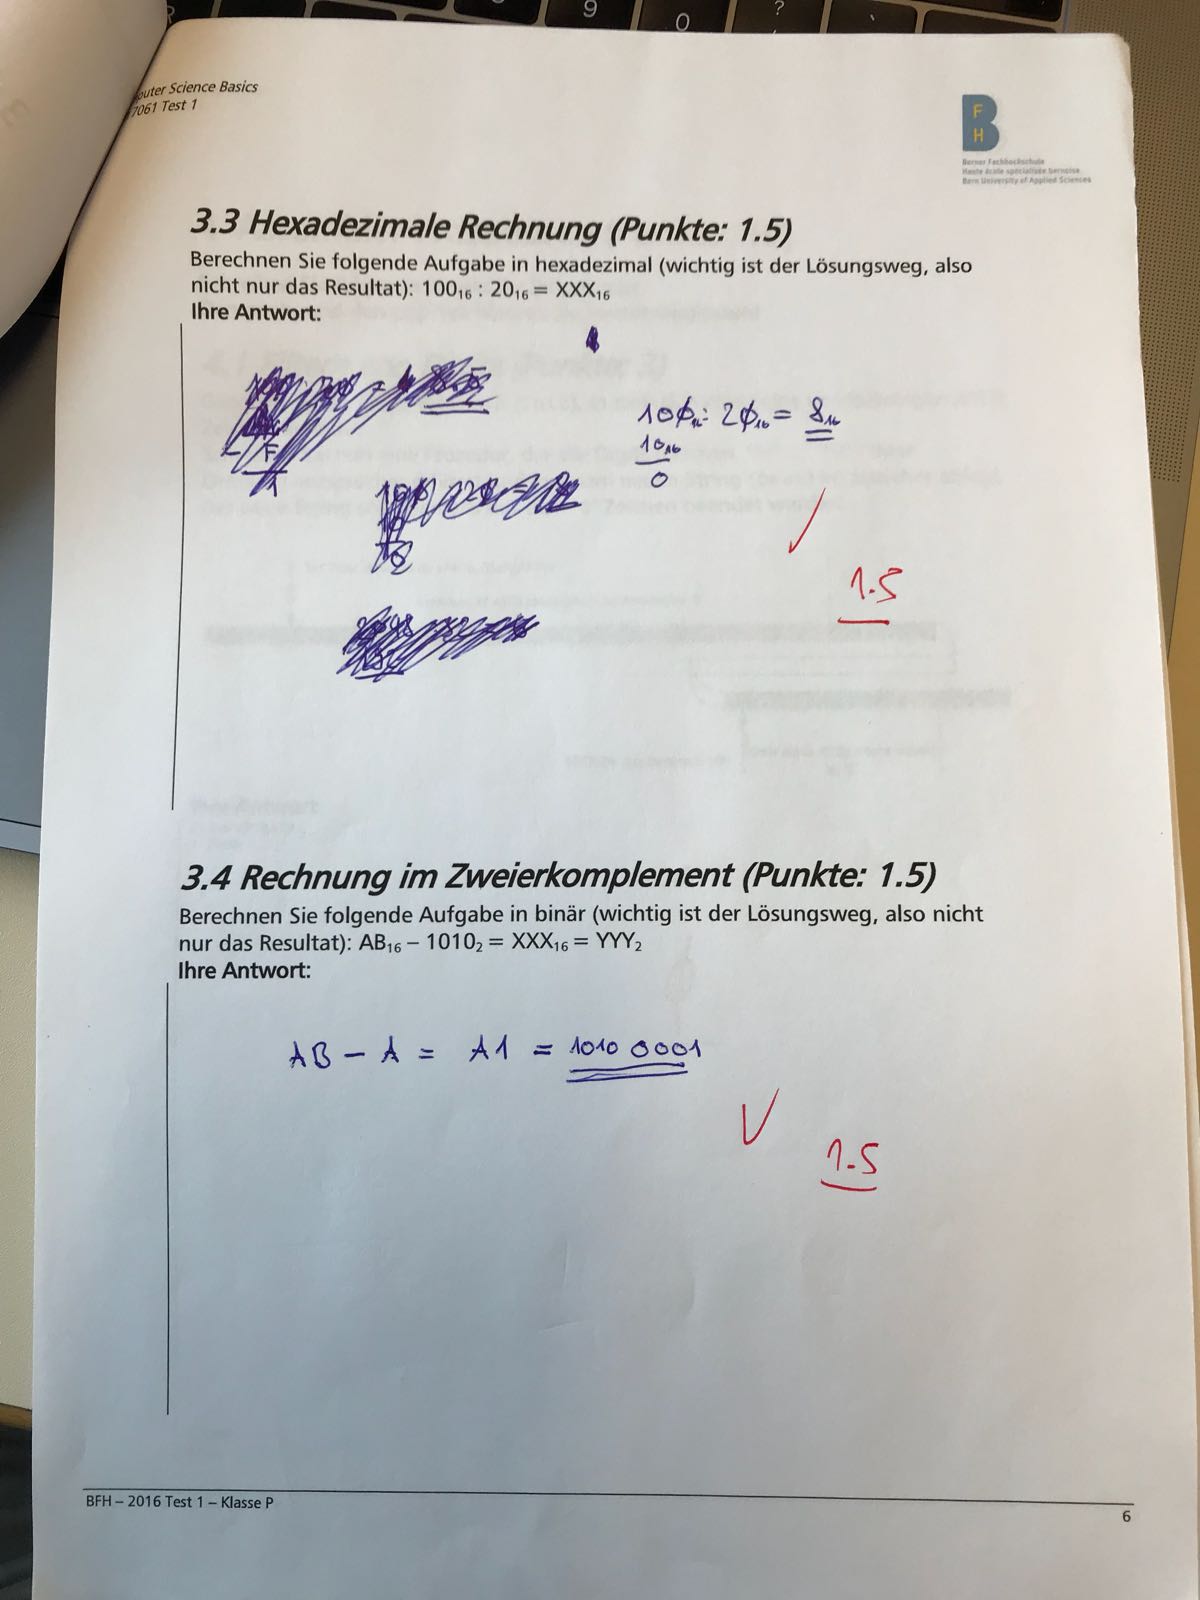 9
0
?
Science Basics
7061 Test 1
F
H
Berner Fachhochschule
Haute école spécialisée bernoise
Bern University of Applied Sciences
3.3 Hexadezimale Rechnung (Punkte: 1.5)
Berechnen Sie folgende Aufgabe in hexadezimal (wichtig ist der Lösungsweg, also
nicht nur das Resultat): 100₁₆ : 20₁₆ = XXX₁₆
Ihre Antwort:
100₁₆ : 20₁₆ = 8₁₆
10₁₆
0
1.5
3.4 Rechnung im Zweierkomplement (Punkte: 1.5)
Berechnen Sie folgende Aufgabe in binär (wichtig ist der Lösungsweg, also nicht
nur das Resultat): AB₁₆ – 1010₂ = XXX₁₆ = YYY₂
Ihre Antwort:
AB – A = A1 = 1010 0001
1.5
BFH – 2016 Test 1 – Klasse P
6